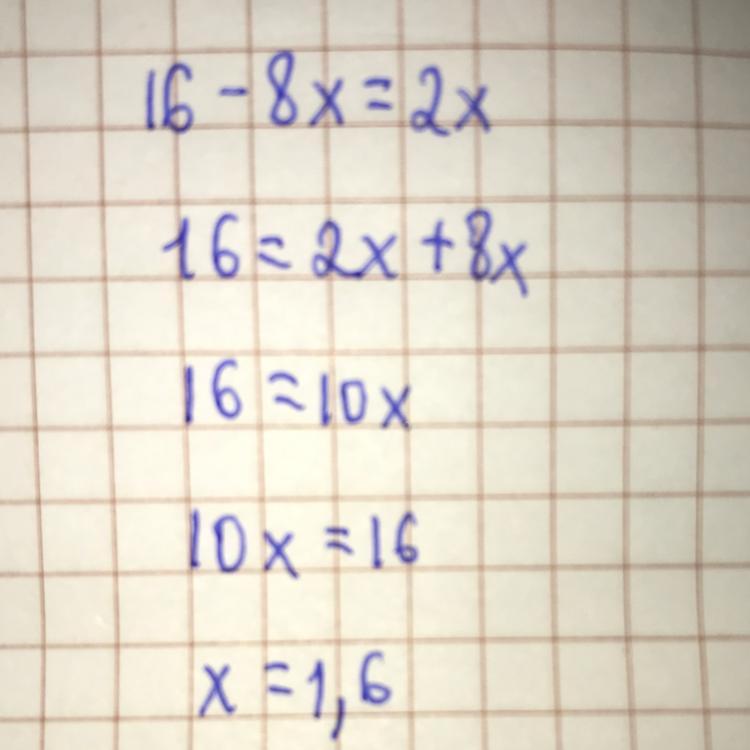 16 - 8x = 2x
16 = 2x + 8x
16 = 10x
10x = 16
x = 1,6